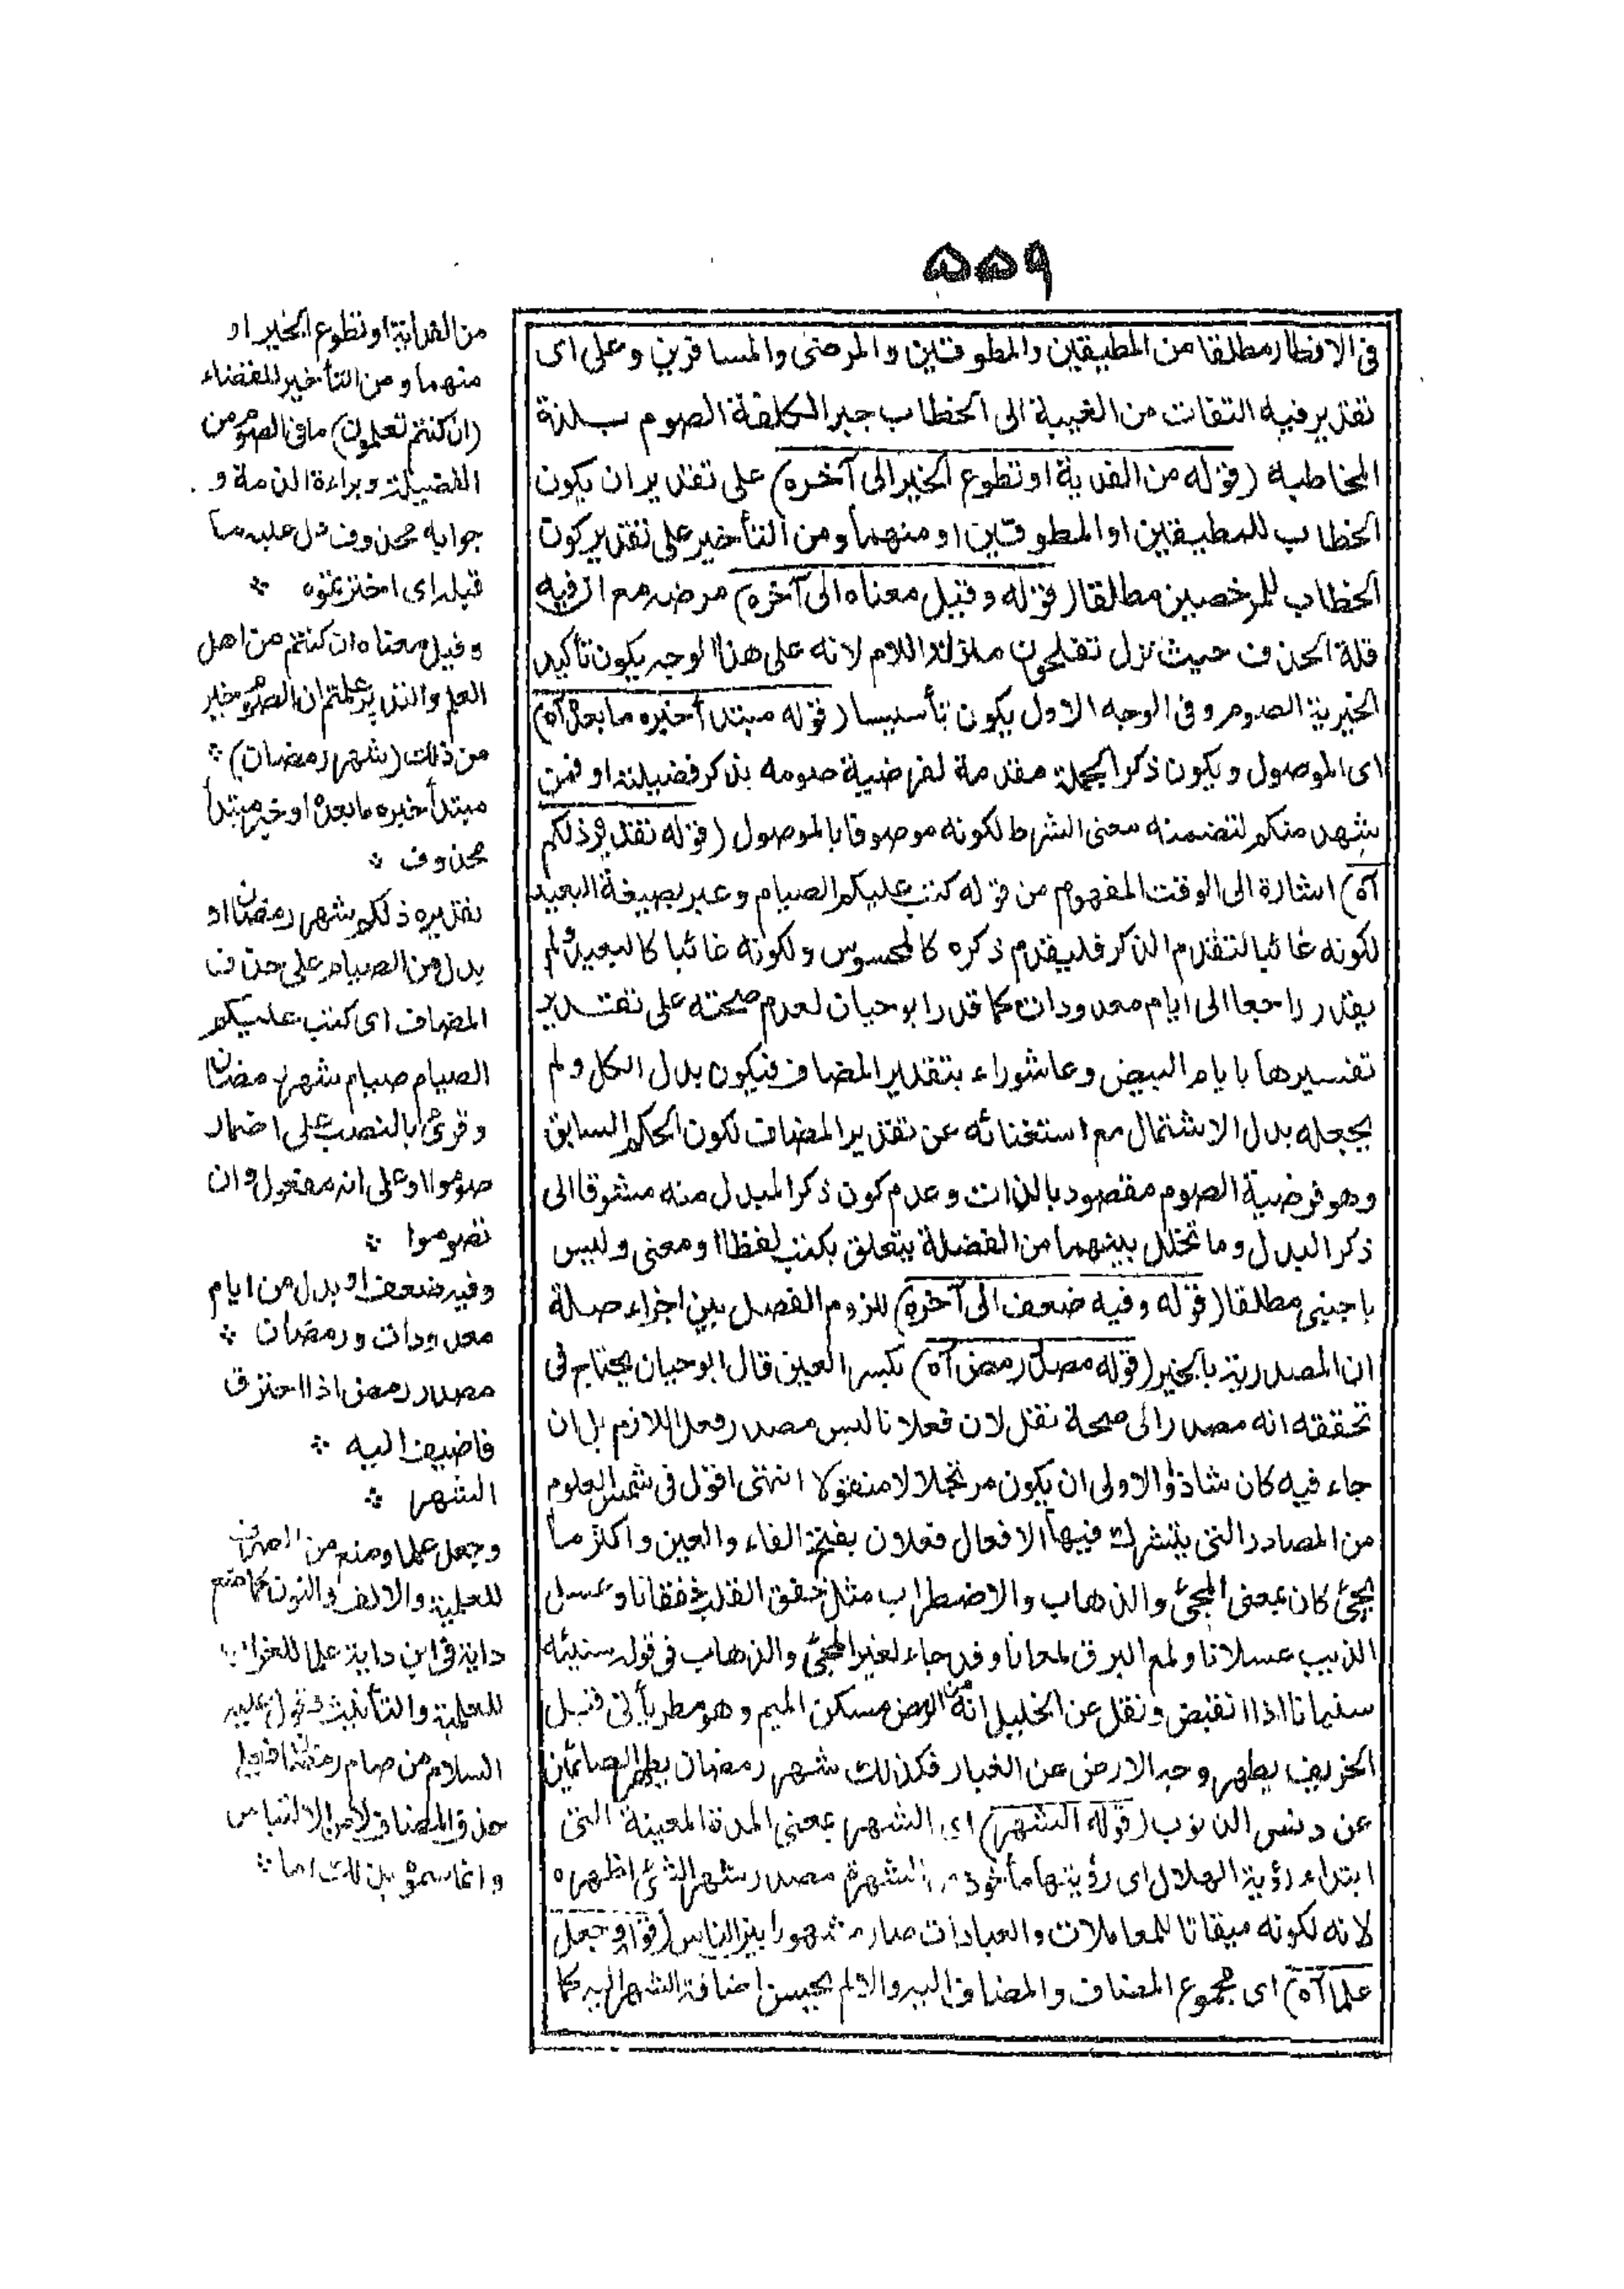 ۵۵۹
فی الافطار مطلقا من المطیقین والمطوقین والمرضی والمسافرین وعلی ای
تقدیر فیه التفات من الغیبة الی الخطاب جبر الکلفة الصوم بلذة
المخاطبة (قوله من الفدیة او تطوع الخیر الی آخره) علی تقدیر ان یکون
الخطاب للمطیقین او المطوقین او منهما ومن التأخیر علی تقدیر کون
الخطاب للمرخصین مطلقا (قوله وقیل معناه الی آخره) مرضه مع ان فیه
قلة الحذف حیث نزل تعلمون منزلة اللام لانه علی هذا الوجه یکون تأکید
الخیریة الصوم وفی الوجه الاول یکون تأسیسا (قوله مبتدأ خبره ما بعده آه)
ای الموصول ویکون ذکر الجملة مقدمة لفرضیة صومه بذکر فضیلته او فمن
شهد منکم لتضمنه معنی الشرط لکونه موصوفا بالموصول (قوله تقدیره ذلکم
آه) اشارة الی الوقت المفهوم من قوله کتب علیکم الصیام وعبر بصیغة البعید
لکونه غائبا لتقدم الذکر فلیقدم ذکره کالمحسوس ولکونه غائبا کالبعید ولم
یقدر راجعا الی ایام معدودات کما قدر ابو حیان لعدم صحته علی تقدیر
تفسیرها بایام البیض وعاشوراء بتقدیر المضاف فیکون بدل الکل ولم
یجعله بدل الاشتمال مع استغنائه عن تقدیر المضاف لکون الحکم السابق
وهو فرضیة الصوم مقصود بالذات وعدم کون ذکر المبدل منه مشوقا الی
ذکر البدل وما تخلل بینهما من الفضلة یتعلق بکتب لفظا او معنی ولیس
باجنبی مطلقا (قوله وفیه ضعف الی آخره) للزوم الفصل بین اجزاء صلة
ان المصدریة بالخبر (قوله مصدر رمض آه) بکسر العین قال ابو حیان یحتاج فی
تحققه انه مصدر الی صحة نقل لان فعلانا لیس مصدر فعل اللازم بل ان
جاء فیه کان شاذا والاولی ان یکون مرتجلا لا منقولا انتهی اقول فی شمس العلوم
من المصادر التی یشترک فیها الافعال فعلان بفتح الفاء والعین واکثر ما
یجئ کان بمعنی المجئ والذهاب والاضطراب مثل خفق القلب خفقانا وعسل
الذیب عسلانا ولمع البرق لمعانا وقد جاء لغیر المجئ والذهاب فی قوله سنیته
سنیانا اذا انقبض ونقل عن الخلیل انه من الرمض مسکن المیم وهو مطر یأتی قبل
الخریف یطهر وجه الارض عن الغبار فکذلک شهر رمضان یطهر الصائمین
عن دنس الذنوب (قوله الشهر) ای الشهر بمعنی المدة المعینة التی
ابتداء رؤیة الهلال ای رؤیتها مأخوذ من الشهرة مصدر شهر الشئ اظهره
لانه لکونه میقاتا للمعاملات والعبادات صار مشهورا بین الناس (قوله وجعل
علما آه) ای مجموع المضاف والمضاف الیه والا لم یحسن اضافة الشهر الیه کما
من الفدیة او تطوع الخیر او
منهما ومن التأخیر للقضاء
(ان کنتم تعلمون) ما فی الصوم من
الفضیلة وبراءة الذمة و
جوابه محذوف دل علیه ما
قبله ای اخترتموه ⁘
وقیل معناه ان کنتم من اهل
العلم والتدبر علمتم ان الصوم خیر
من ذلک (شهر رمضان) ⁘
مبتدأ خبره ما بعده او خبر مبتدأ
محذوف ⁘
تقدیره ذلکم شهر رمضان او
بدل من الصیام علی حذف
المضاف ای کتب علیکم
الصیام صیام شهر رمضان
وقرئ بالنصب علی اضمار
صوموا او علی انه مفعول وان
تصوموا ⁘
وفیه ضعف او بدل من ایام
معدودات ورمضان ⁘
مصدر رمض اذا احترق
فاضیف الیه ⁘
الشهر ⁘
وجعل علما ومنع من الصرف
للعلمیة والالف والنون کما منع
دایة فی ابن دایة علما للغراب
للعلمیة والتأنیث وقوله علیه
السلام من صام رمضان فعلی
حذف المضاف لامن الالتباس
وانما سموه بذلک اما ⁘